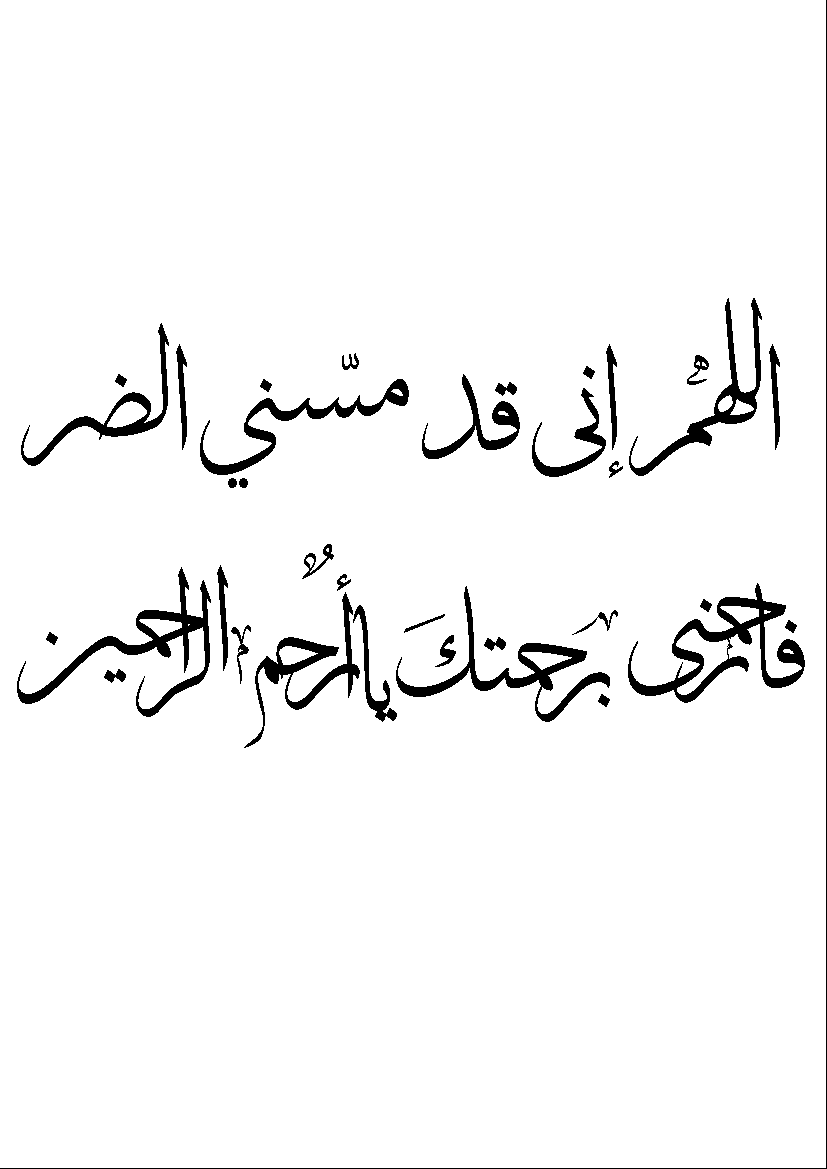 اللهم إنى قد مسّني الضر
فارحمنى برحمتكَ يا أرحم الراحمين